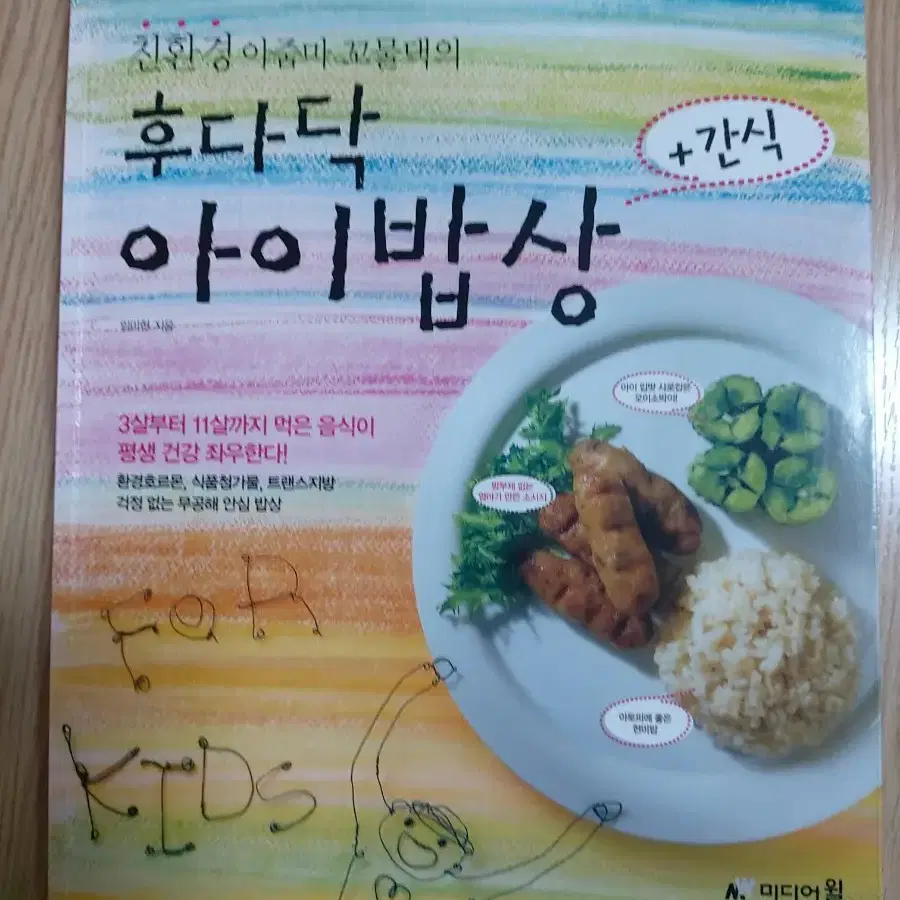 친환경 아줌마 꼬물댁의
후다닥
+간식
아이밥상
임미현 지음
3살부터 11살까지 먹은 음식이
평생 건강 좌우한다!
환경호르몬, 식품첨가물, 트랜스지방
걱정 없는 무공해 안심 밥상
아이 입맛 사로잡은
오이소박이!
방부제 없는
엄마가 만든 소시지
아토피에 좋은
현미밥
FOR
KIDS
미디어윌